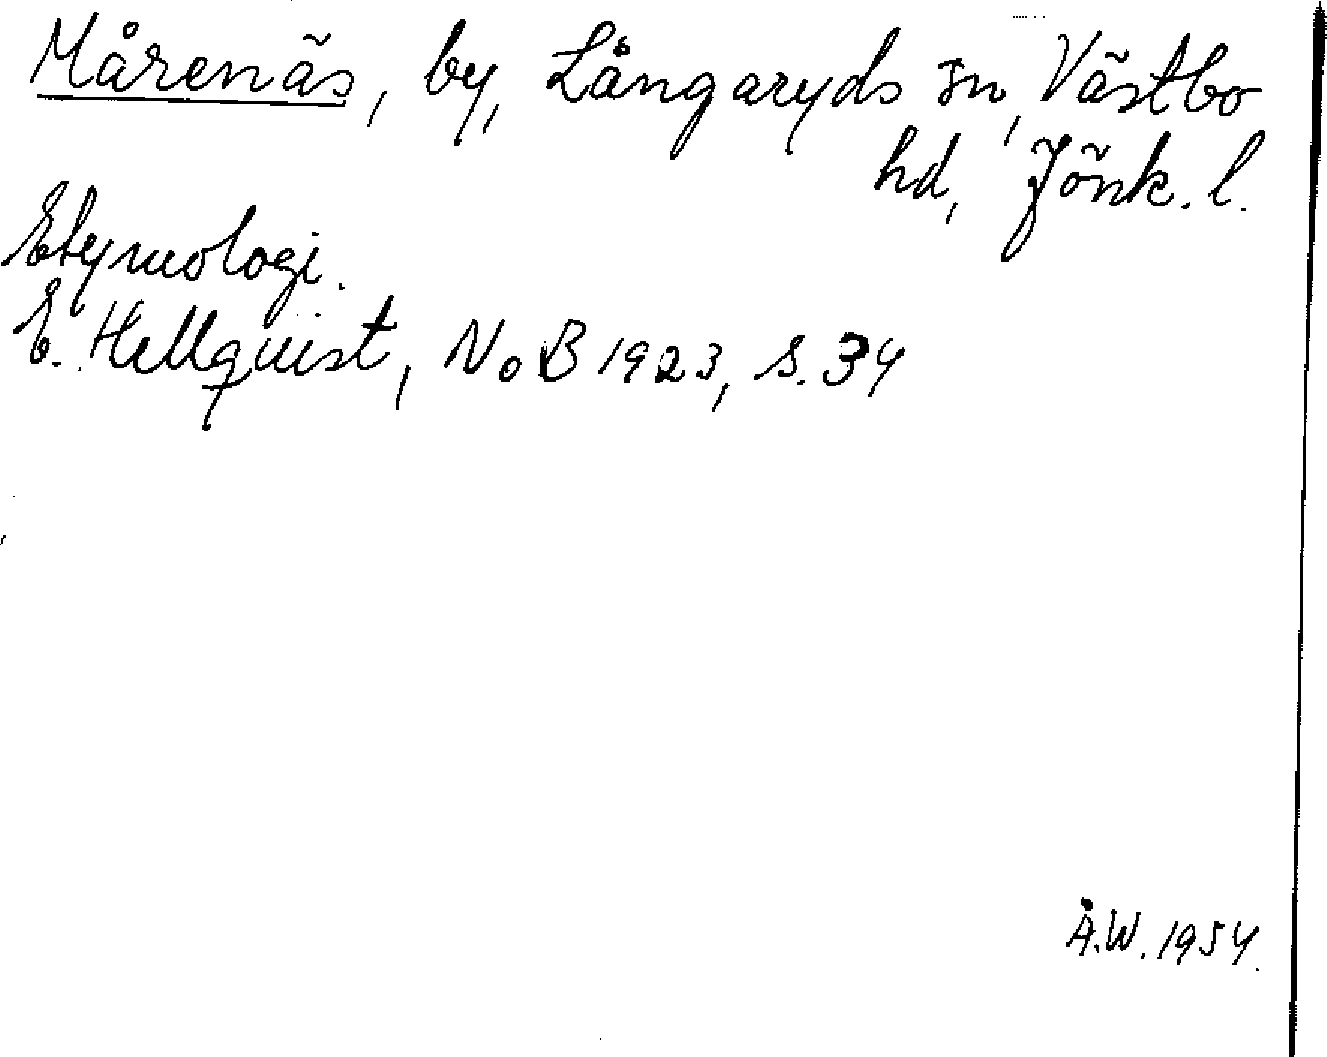 Mårenäs, by, Långaryds sn, Västbo
hd, Jönk. l.
Etymologi.
E. Hellquist, NoB 1923, s. 34
Å.W. 1954.